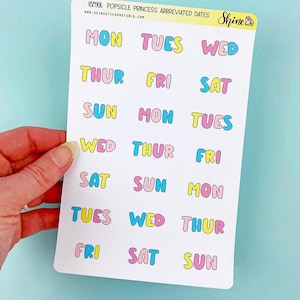 POPSICLE PRINCESS ABBREVIATED DATES
Shine
MON TUES WED
THUR FRI SAT
SUN MON TUES
WED THUR FRI
SAT SUN MON
TUES WED THUR
FRI SAT SUN